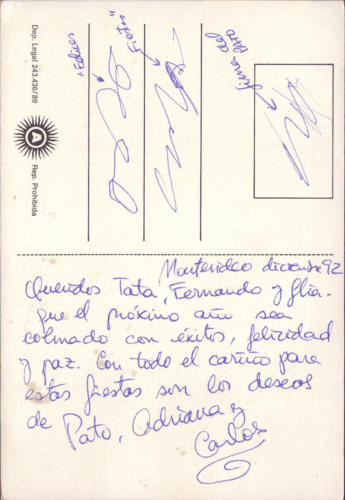 Dep. Legal 243.436/89
A
Rep. Prohibida
"Felices
Fiestas"
firma del
Pato
Montevideo diciembre 92
Queridos Tata, Fernando y flia.
que el próximo año sea
colmado con éxitos, felicidad
y paz. Con todo el cariño para
estas fiestas son los deseos
de Pato, Adriana y
Carlos